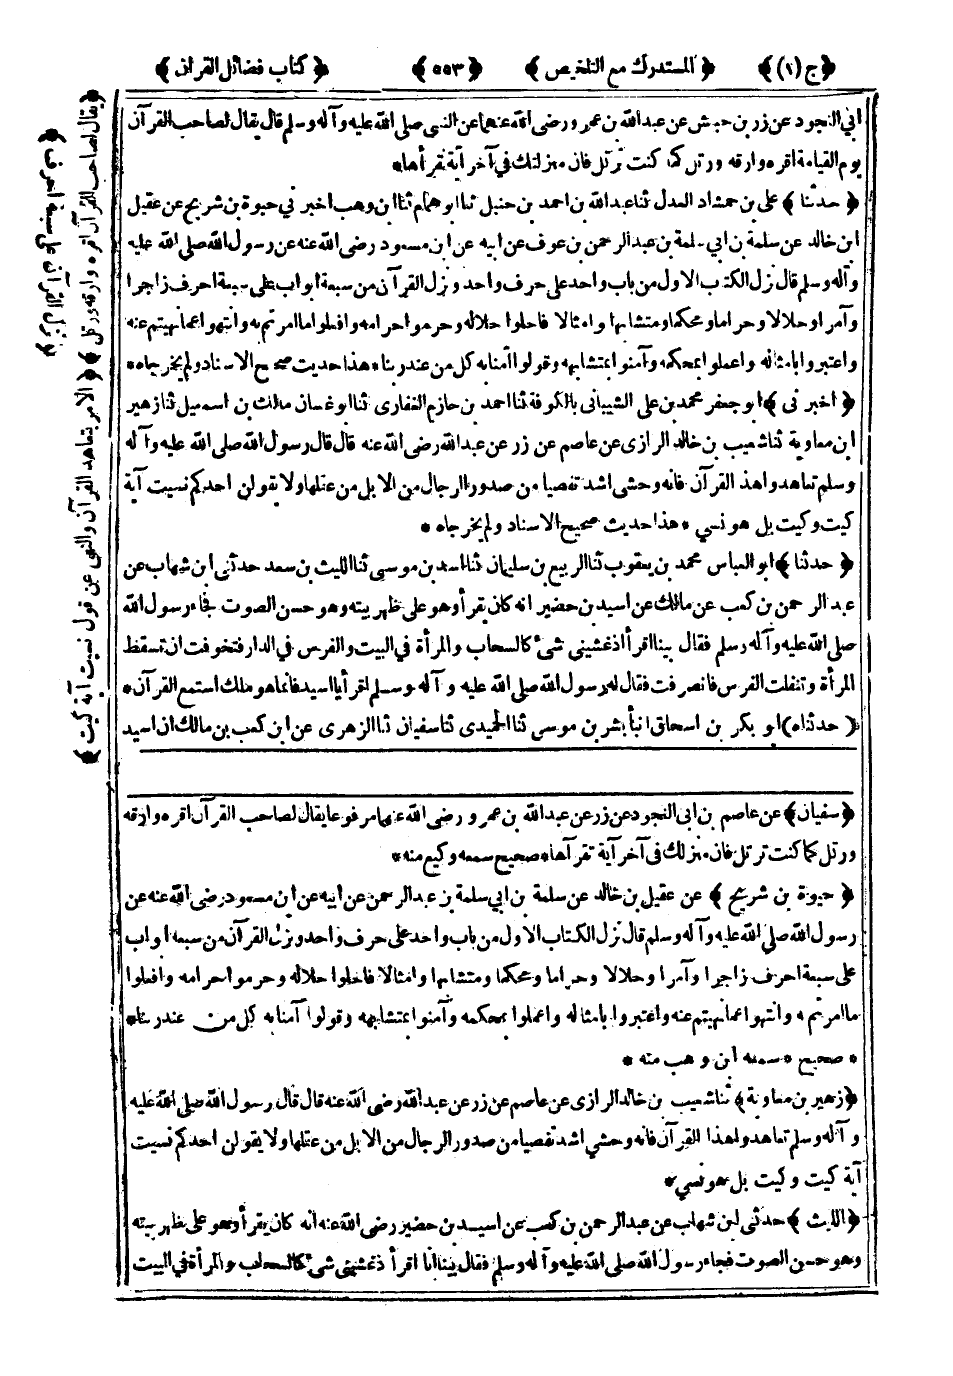 ﴿ ج (١) ﴾ ﴿ المستدرك مع التلخيص ﴾ ﴿ ٥٥٣ ﴾ ﴿ كتاب فضائل القرآن ﴾
ابي النجود عن زر بن حبيش عن عبد الله بن عمرو رضى الله عنهما عن النبى صلى الله عليه وآله وسلم قال يقال لصاحب القرآن
يوم القيامة اقره وارقه ورتل كما كنت ترتل فان منزلتك في آخر آية تقرأها*
﴿ حدثنا ﴾ علي بن حمشاد العدل ثنا عبد الله بن احمد بن حنبل ثنا ابو همام ثنا ابن وهب اخبر ني حيوة بن شريح عن عقيل
ابن خالد عن سلمة بن ابي سلمة بن عبد الرحمن بن عوف عن ابيه عن ابن مسعود رضى الله عنه عن رسول الله صلى الله عليه
وآله وسلم قال نزل الكتب الاول من باب واحد على حرف واحد ونزل القرآن من سبعة ابواب على سبعة احرف زاجرا
وآمرا وحلالا وحراما ومحكما ومتشابها وامثالا فاحلوا حلاله وحرموا حرامه وافعلوا ما امرتم به وانتهوا عما نهيتم عنه
واعتبروا بامثاله واعملوا بمحكمه وآمنوا بمتشابهه وقولوا آمنا به كل من عند ربنا* هذا حديث صحيح الاسناد ولم يخرجاه*
﴿ اخبر نى ﴾ ابو جعفر محمد بن على الشيبانى بالكوفة ثنا احمد بن حازم الغفارى ثنا ابو غسان مالك بن اسمعيل ثنا زهير
ابن معاوية ثنا شعيب بن خالد الرازى عن عاصم عن زر عن عبد الله رضى الله عنه قال قال رسول الله صلى الله عليه وآله
وسلم تعاهدوا هذ القرآن فانه وحشى اشد تفصيا من صدور الرجال من الابل من عقلها ولا يقولن احدكم نسيت آية
كيت وكيت بل هو نسي * هذا حديث صحيح الاسناد ولم يخرجاه *
﴿ حدثنا ﴾ ابو العباس محمد بن يعقوب ثنا الربيع بن سليمان ثنا اسد بن موسى ثنا الليث بن سعد حدثنى ابن شهاب عن
عبد الرحمن بن كعب عن مالك عن اسيد بن حضير انه كان يقرأ وهو على ظهر بيته وهو حسن الصوت فجاء رسول الله
صلى الله عليه وآله وسلم فقال بينا اقرأ اذ غشيني شئ كالسحاب والمرأة في البيت والفرس في الدار فتخوفت ان تسقط
المرأة وتنفلت الفرس فانصرفت فقال له رسول الله صلى الله عليه وآله وسلم اقرأ يا اسيد فانما هو ملك استمع القرآن*
( حدثناه) ابو بكر بن اسحاق انبأ بشر بن موسى ثنا الحميدى ثنا سفيان ثنا الزهرى عن ابن كعب بن مالك ان اسيد
﴿سفيان﴾ عن عاصم بن ابى النجود عن زر عن عبد الله بن عمرو رضى الله عنهما مرفوعا يقال لصاحب القرآن اقره وارقه
ورتل كما كنت ترتل فان منزلك فى آخر آية تقرأها* صحيح سمعه وكيع منه*
﴿ حيوة بن شريح ﴾ عن عقيل بن خالد عن سلمة بن ابي سلمة بن عبد الرحمن عن ابيه عن ابن مسعود رضى الله عنه عن
رسول الله صلى الله عليه وآله وسلم قال نزل الكتاب الاول من باب واحد على حرف واحد ونزل القرآن من سبعة ابواب
على سبعة احرف زاجرا وآمرا وحلالا وحراما ومحكما ومتشابها وامثالا فاحلوا حلاله وحرموا حرامه وافعلوا
ما امرتم به وانتهوا عما نهيتم عنه واعتبروا بامثاله واعملوا بمحكمه وآمنوا بمتشابهه وقولوا آمنا به كل من عند ربنا*
* صحيح * سمعه ابن وهب منه *
﴿زهير بن معاوية﴾ ثنا شعيب بن خالد الرازى عن عاصم عن زر عن عبد الله رضى الله عنه قال قال رسول الله صلى الله عليه
وآله وسلم تعاهدوا هذا القرآن فانه وحشي اشد تفصيا من صدور الرجال من الابل من عقلها ولا يقولن احدكم نسيت
آية كيت وكيت بل هو نسي*
﴿الليث ﴾ حدثنى ابن شهاب عن عبد الرحمن بن كعب عن اسيد بن حضير رضى الله عنه انه كان يقرأ وهو على ظهر بيته
وهو حسن الصوت فجاء رسول الله صلى الله عليه وآله وسلم فقال بينا انا اقرأ اذ غشينى شئ كالسحاب والمرأة في البيت
﴿ يقال لصاحب القرآن اقره وارقه ورتل ﴾ ﴿ الامر بتعاهد القرآن والنهى عن قول نسيت آية كيت ﴾
﴿ نزل القرآن على سبعة احرف ﴾